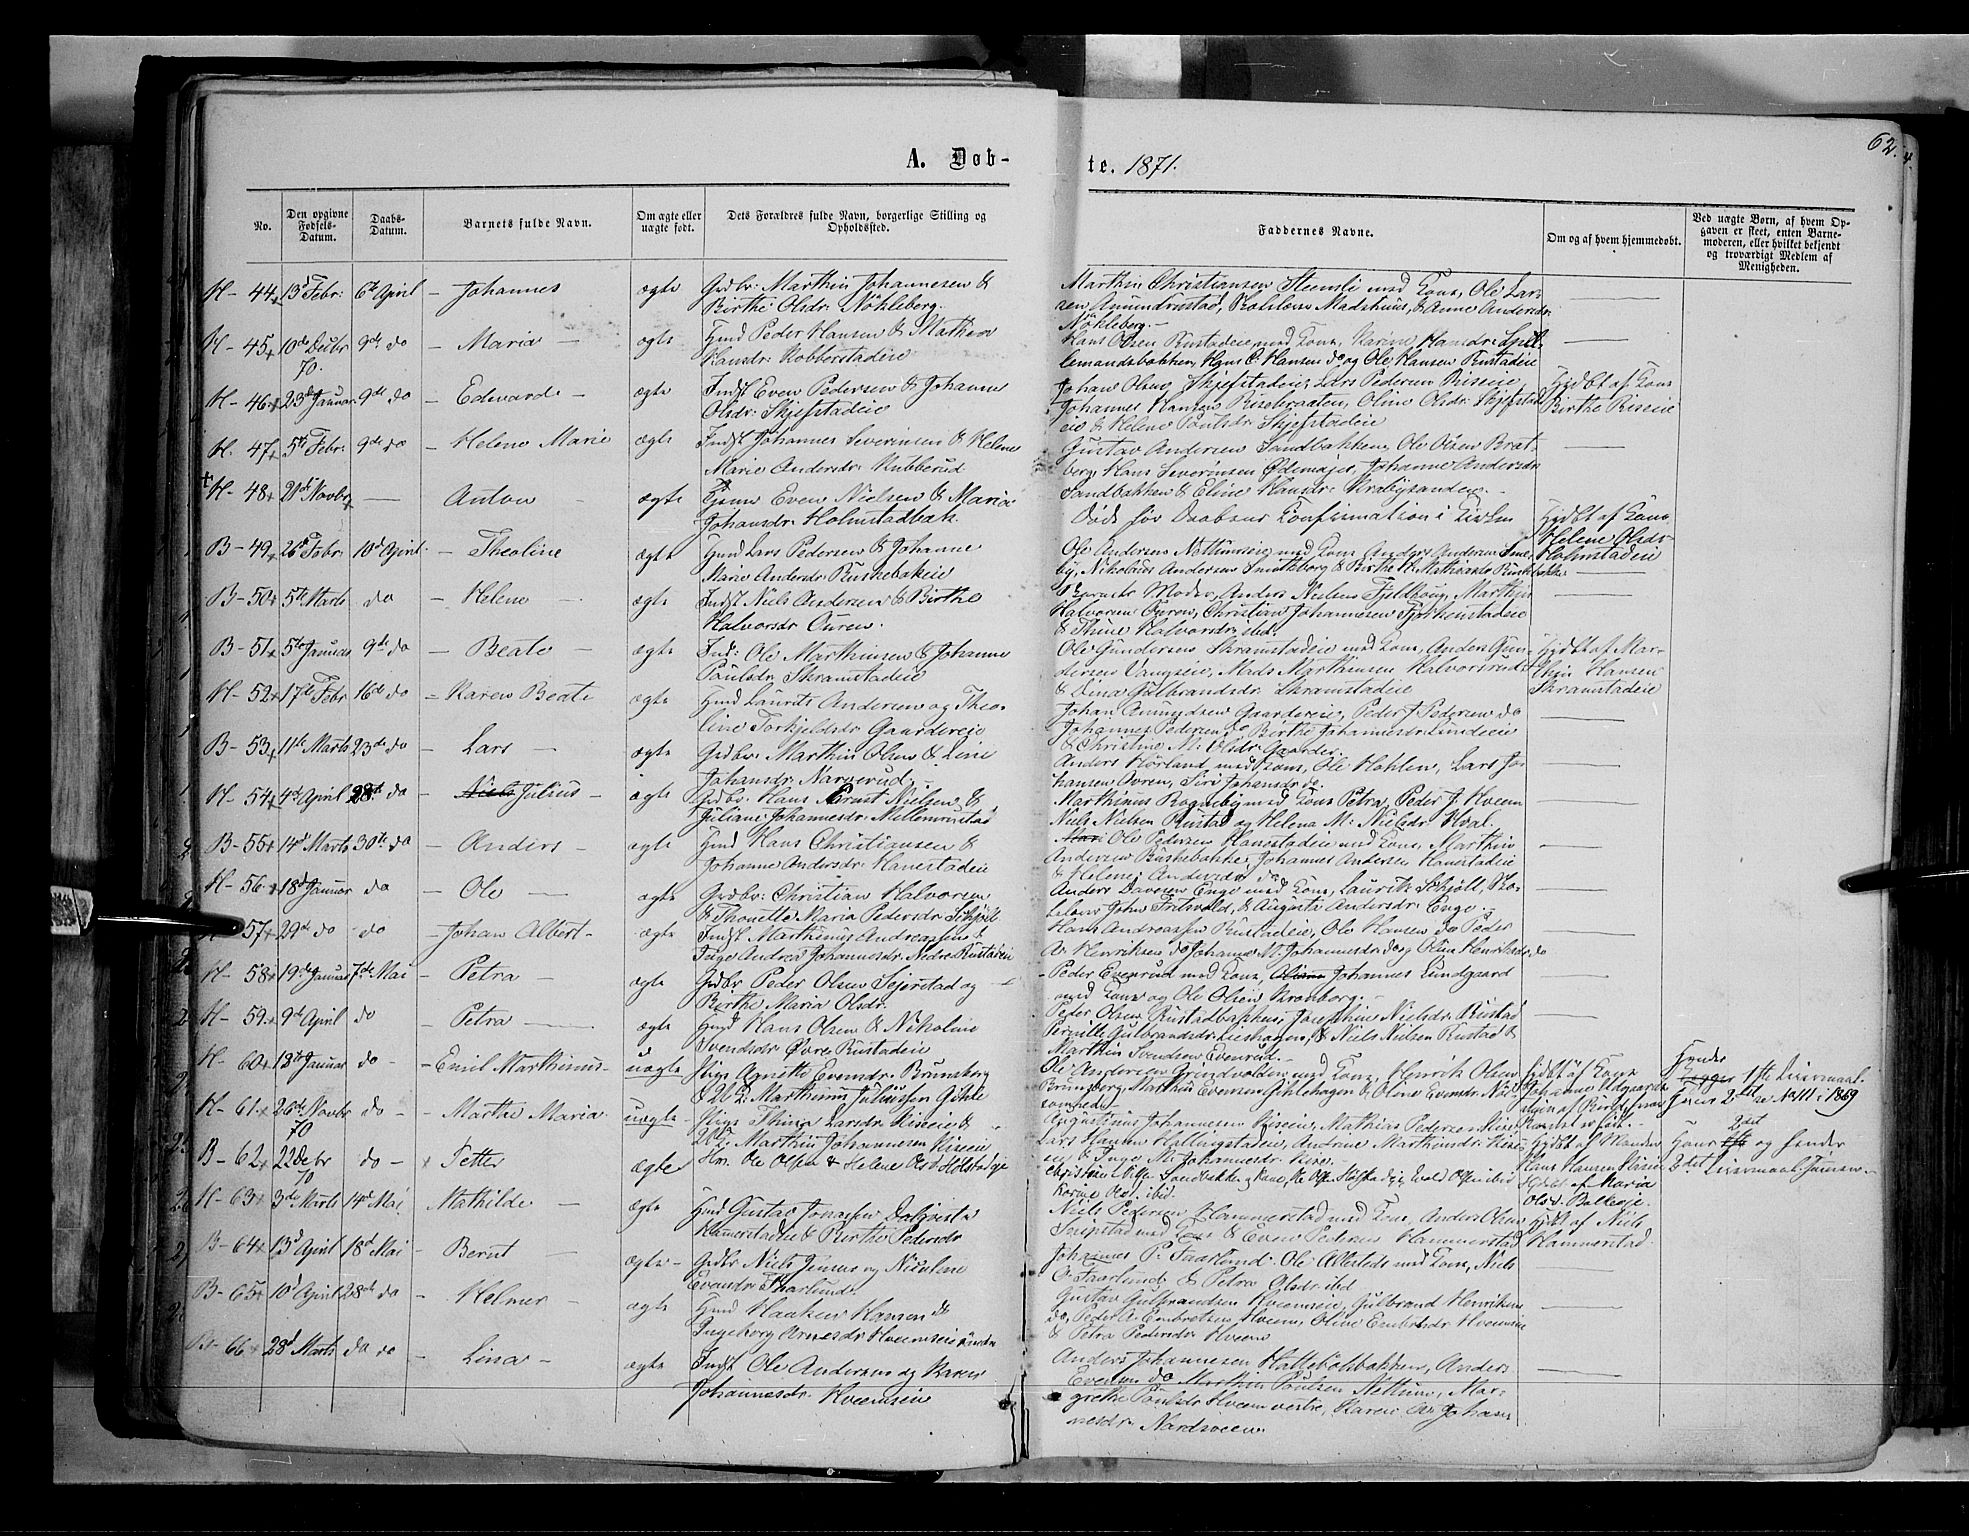 62.
A. Døb-
te. 1871.
No.
Den opgivne Fødsels-Datum.
Daabs-Datum.
Barnets fulde Navn.
Om ægte eller uægte født.
Dets Forældres fulde Navn, borgerlige Stilling og Opholdssted.
Faddernes Navne.
Om og af hvem hjemmedøbt.
Ved uægte Børn, af hvem Opgaven er skeet, enten Barnemoderen, eller hvilket bekjendt og troværdigt Medlem af Menigheden.
H- 44 13d Febr: 6te April - Johannes ægte Grdbr: Marthin Johannesen &
Birthe Olsdr: Nöhleberg.
Marthin Christiansen Steensli med Kone, Ole Lar-
sen Amundrustad, Madshuus, & Anne Andersdr:
Nöhleberg. -
H- 45 10de Decbr 70. 9de do - Maria - ægte Hmd Peder Hansen & Mathea
Hansdr: Kobberstadeie
Hans Olsen Rustadeie med Kone, Karine Hansdr: Spil-
lemandsbakken, Hans C. Hansen do og Ole Hansen Rustadeie
H- 46 23d Januar 9de do - Edevarde - ægte Indst Even Pedersen & Johanne
Olsdr: Skjefstadeie
Johan Olsen Skjefstadeie, Lars Pedersen Riseeie,
Johannes Hansen Risebraaten, Oline Olsdr: Skjefstad-
eie & Helene Poulsdr Skjefstadeie
Hjdbt af Kone
Birthe Riseeie
H- 47 5te Febr: 9de do - Helene Marie ægte Indst Johannes Severinsen & Helene
Marie Andersdr: Kubberud
Gustav Andersen Sandbakken, Ole Olsen Brat-
berg, Hans Severinsen Ødemajer, Johanne Andersdr
Sandbakken & Eline Hansdr: Krabysanden. -
H- 48 21de Novbr - Anton - ægte Even Nielsen & Maria
Johansdr: Holmstadbak.
Døde før Daabens Confirmation i Kirken
Hjdbt af Kone
Helene Olsdr
Holmstadeie
B- 49 26d Febr: 10d April - Theoline ægte Hmd Lars Pedersen & Johanne
Marie Andersdr: Ruskebakeie
Ole Andersen med Kone, Anders Andersen
by, Nikolaus Andersen Smithsborg & Birthe M. Mathiasdr:
B- 50 5te Marts do - Helene - ægte Indst Niels Andersen & Birthe
Halvorsdr Ouren.
Barnets Moder, Anders Nielsen Fjeldhoug, Marthin
Halvorsen Ouren, Christian Johannesen
& Thine Halvorsdr: ibid.
B- 51 5te Januar 9de do - Beate - ægte Ind: Ole Marthinsen & Johanne
Poulsdr: Skramstadeie
Ole Gundersen Skramstadeie med Kone, Anders Gun-
dersen Vangseie, Mads Marthinsen Halvorsrud
& Dina Gulbrandsdr: Skramstadeie
Hjdbt af Mar-
thin Hansen
Skramstadeie
H- 52 17de Febr 16de do - Karen Beate ægte Hmd Laurits Andersen og Theo-
line Torkjeldsdr: Gaardereie
Johan Amundsen Gaardereie, Peder J. Pedersen do
Johannes Pedersen do Birthe Johannesdr: Lundeeie
& Christine M: Olsdr: Gaarder.
B- 53 11te Marts 23de do - Lars - ægte Grdbr: Marthin Olsen & Line
Johansdr: Narverud
Anders Hörland med Kone, Ole Hohlen, Lars Jo-
hansen Ovren, Siri Johansdr: do.
H- 54 4de April 28de do - Niels Julius - ægte Grdbr: Hans Nielsen &
Juliane Johannesdr: Mellemrustad
Marthinus Rognebye med Kone Petra, Peder J. Hveem
Niels Nielsen Rustad og Helena M: Nielsdr: Hval.
B- 55 14d Marts 30te do - Anders - ægte Hmd Hans Christiansen &
Johanne Andersdr: Hanestadeie
Mari Ole Pedersen Hanestadeie med Kone, Marthin
Andersen Ruskebakke, Johannes Andersen Hanestadeie
& Helene Andersdr do
H- 56 18d Januar do - Ole - ægte Grdbr: Christian Halvorsen
& Thonette Maria Pedersdr: Schjöll
Anders Davesen Enge med Kone, Laurits Schjöll, Sko-
lelærer John Fritsvold, & Augusta Andersdr: Enge. -
57 29de do do - Johan Albert - ægte Indst Marthinus Andreassen &
Inge Andrea Johannesdr: Nedre Rustadeie
Hans Andreassen Rustadeie, Ole Hansen do Peder
A. Henriksen do Johanne M. Johannesdr: do og Oline Henriksdr: do
H- 58 19de Januar 7de Mai - Petra - ægte Grdbr: Peder Olsen Sejerstad og
Birthe Maria Olsdr:
- Peder Evenrud med Kone, Johannes Lundgaard
med Kone og Ole Olsen Kronborg. -
H- 59 9de April do - Petra - ægte Hmd Hans Olsen & Nikoline
Svendsdr: Øvre Rustadeie
Peder Olsen Rustadbakken, Josephine Nielsdr: Rustad
Pernille Gulbrandsdr: Lieshagen, & Niels Nielsen Rustad &
Marthin Svendsen Evenrud. -
H- 60 18de Januar do - Emil Marthinus - uægte Pige Agnethe Evensdr: Brunsberg
& Marthinus Juliussen Gihle
Ole Andersen Grindvolden med Kone, Henrik Olsen
Brunsberg, Marthin Evensen Gihlehagen & Oline Evensdr: Nöi-
somhed
Hjdbt af Kone
Hendes
1ste Leiermaal.
H- 61 26de Novbr 70 do - Marthe Maria uægte - Pige Thina Larsdr: Riseeie &
Marthin Johannesen Riseeie
Augustinus Johannesen Riseeie, Mathias Pedersen
Lars Hansen Hellingstadeie, Andrine Marthinsdr: Rise-
eie & Inge M. Johannesdr:
Hjdbt af Manden
Hans Hansen Riseeie
Hans og hendes
2det Leiermaal.
B- 62 22 Decbr 70 do - Petter ægte Hm. Ole Olsen & Helene Olsd Holstadeje
Christian Olsen med Kone, Ole Olsen
Karine Olsd. ibid.
Hjdbt af Maria
Olsd. Balkeeje.
H- 63 3de Marts 14d Mai Mathilde - ægte Hmd Gustav Jonassen Dalqvist
Hamerstadeie & Birthe Pedersdr:
Niels Pedersen Hammerstad med Kone, Anders Olsen
med Kone & Even Pedersen Hammerstad
Hjdbt af Niels
Hammerstad.
B- 64 13d April 18d Mai - Bernt - ægte - Grdbr Niels Jensen og Nicoline
Evensdr: Thorlund
Johannes P. Faarlund. Ole Allestede med Kone, Niels
O. Faarlund & Petra Olsdr: ibid
B- 65 10d April 28de do - Helmer - ægte Hmd Haaken Hansen &
Ingeborg Arnesdr: Hveemseie
Gustav Gulbrandsen Hveemseie, Gulbrand Henriksen
do, Peder A. Embretsen Hveem, Oline Embretsdr: Hveemseie
& Petra Pedersdr Hveem
B- 66 28d Marts do do - Lina - ægte Indst Ole Andersen og Karen
Johannesdr: Hveemseie
Anders Johannesen Hattebölbakken, Anders
Evensen do Marthin Poulsen Nettum, Mar-
grethe Poulsdr Hveem vestre, Karen Johan-
nesdr: Nardsveen.